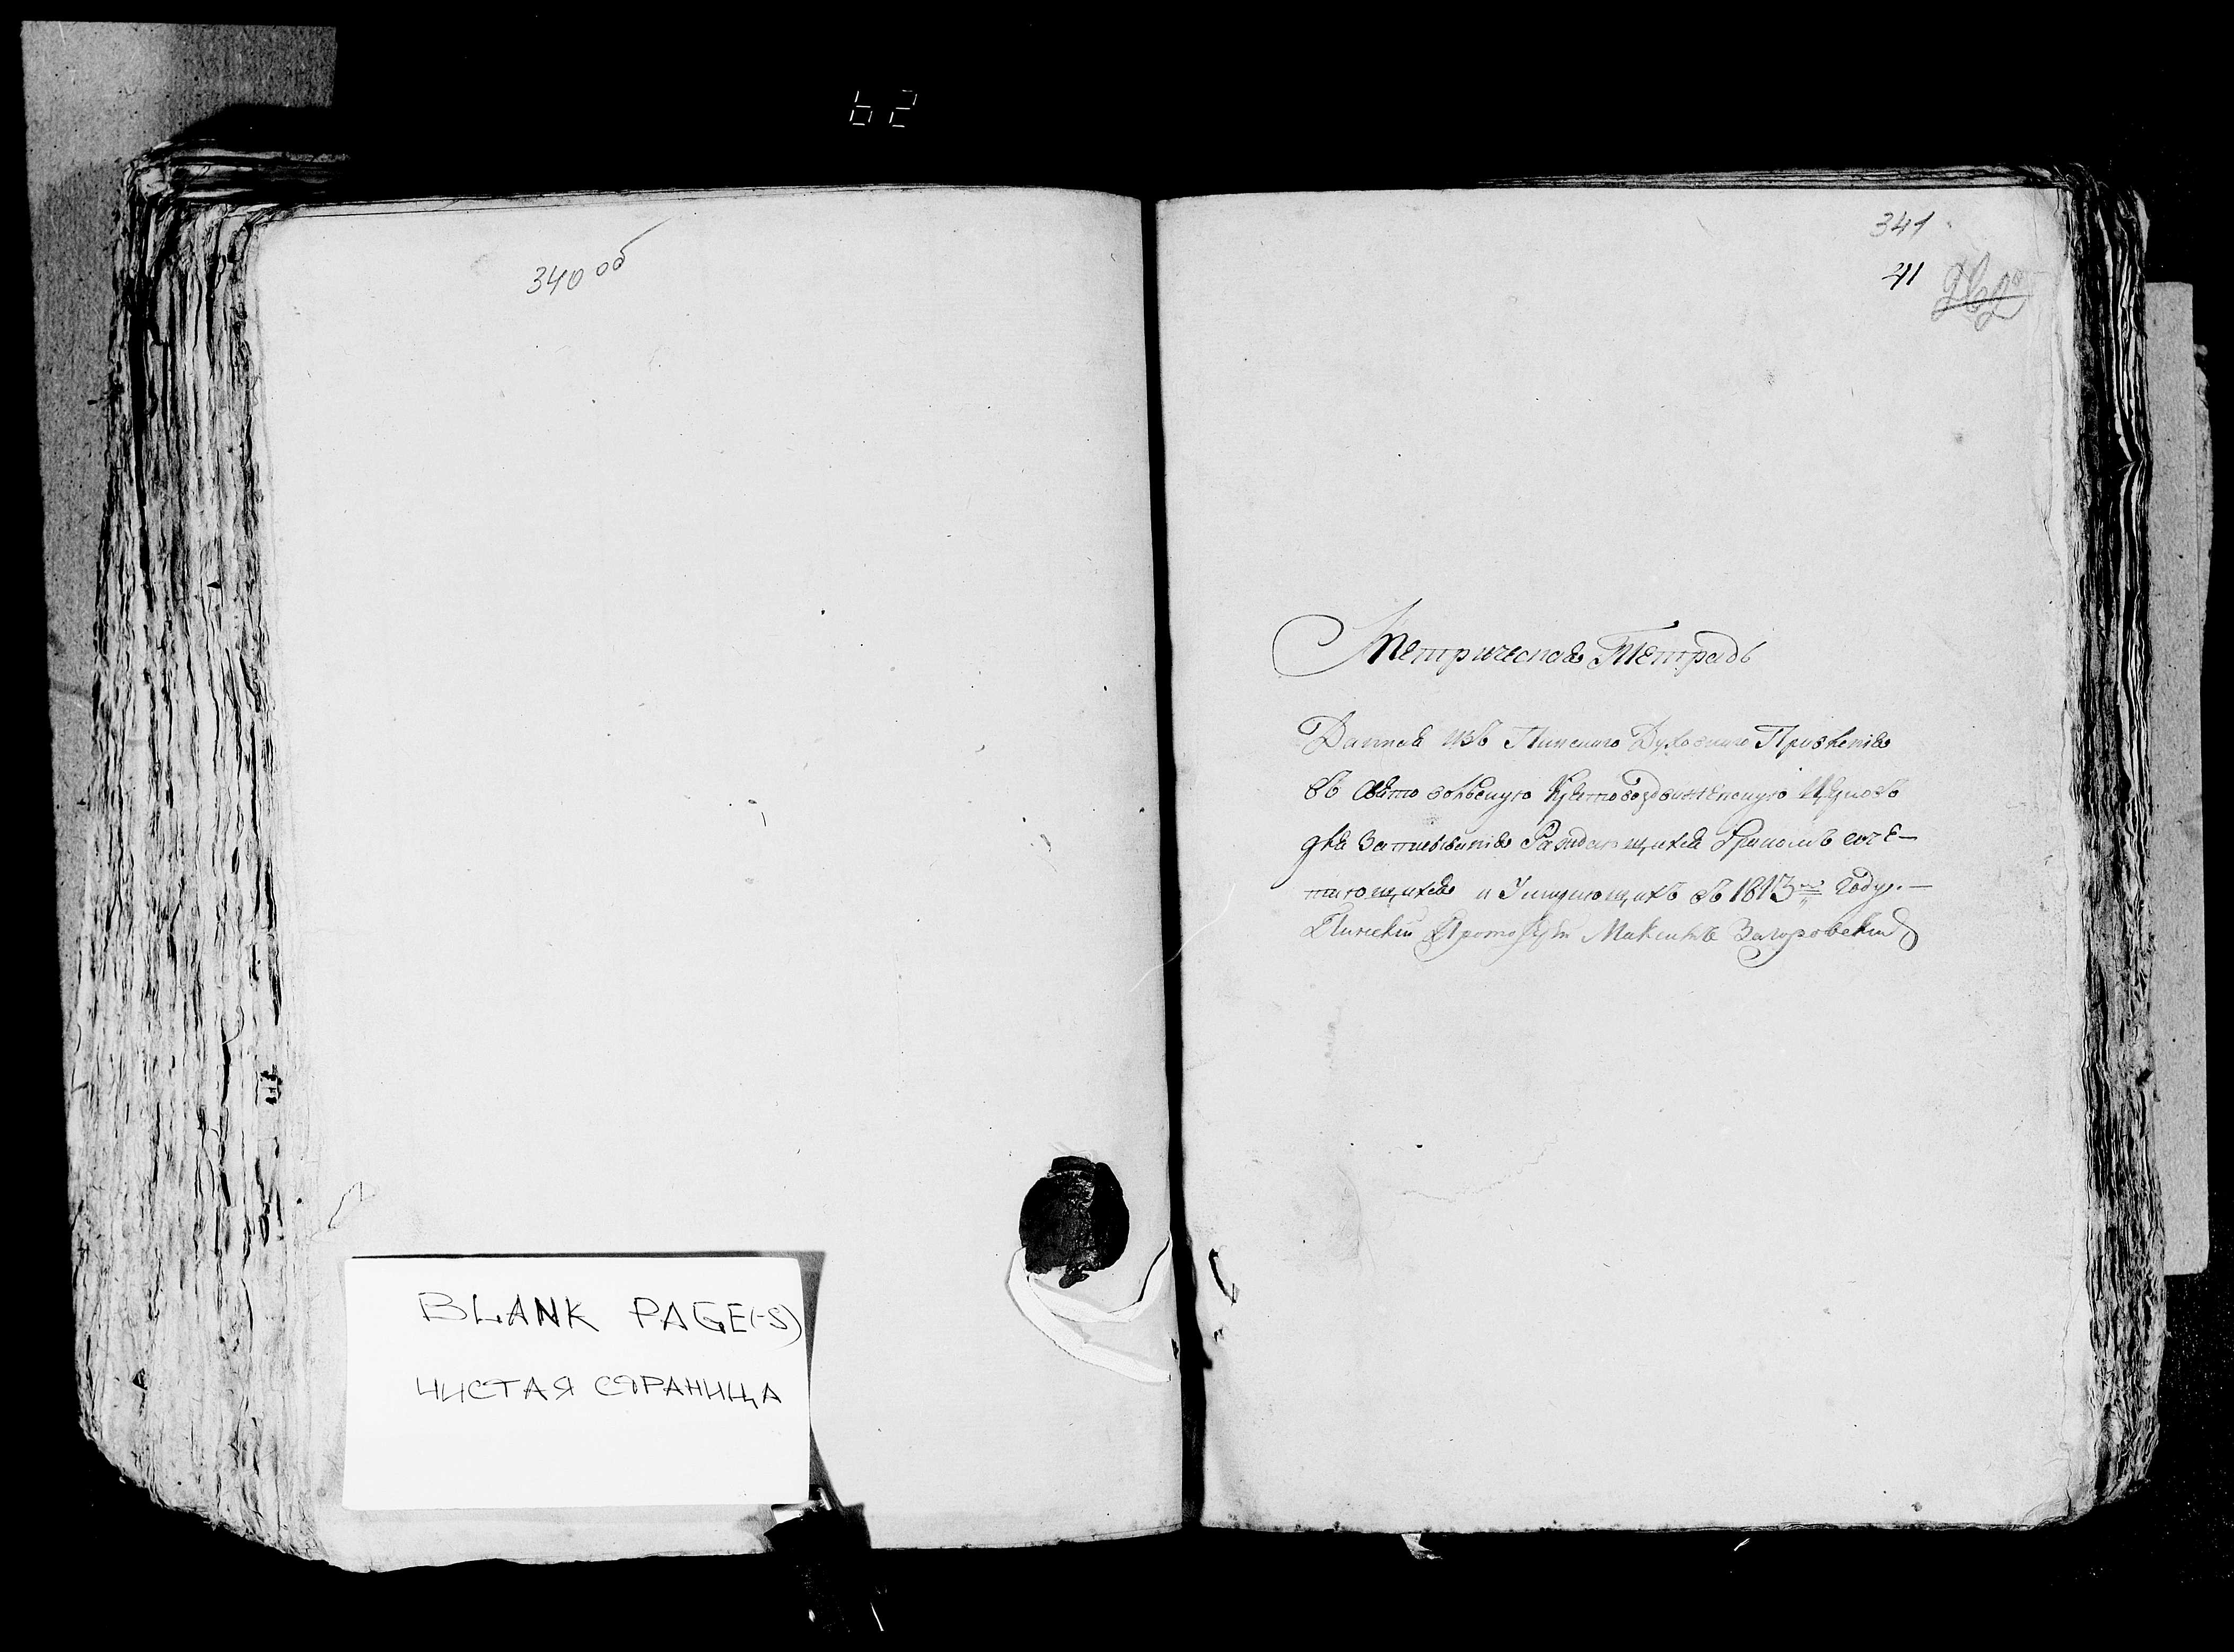 62
340 об
BLANK PAGE(-S)
ЧИСТАЯ СТРАНИЦА
341
41
Метрическая Тетрадь
Данная изъ Пинскаго Духовнаго Правленія
въ Свято вольскую Крестовоздвиженскую Церковь
для Записыванія Раждающихся Бракомъ соче-
тающихся и Умирающихъ въ 1813 Году.—
Пинскій Максимъ Загоровский